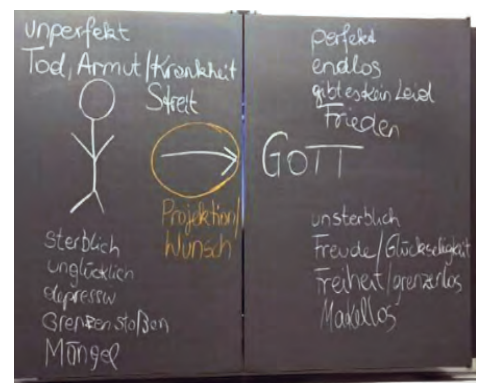 unperfekt
Tod, Armut/Krankheit
Streit
Projektion/
Wunsch
sterblich
unglücklich
depressiv
Grenzen stoßen
Mängel
perfekt
endlos
gibt es kein Leid
Frieden
GOTT
unsterblich
Freude/Glückseligkeit
Freiheit/grenzenlos
Makellos